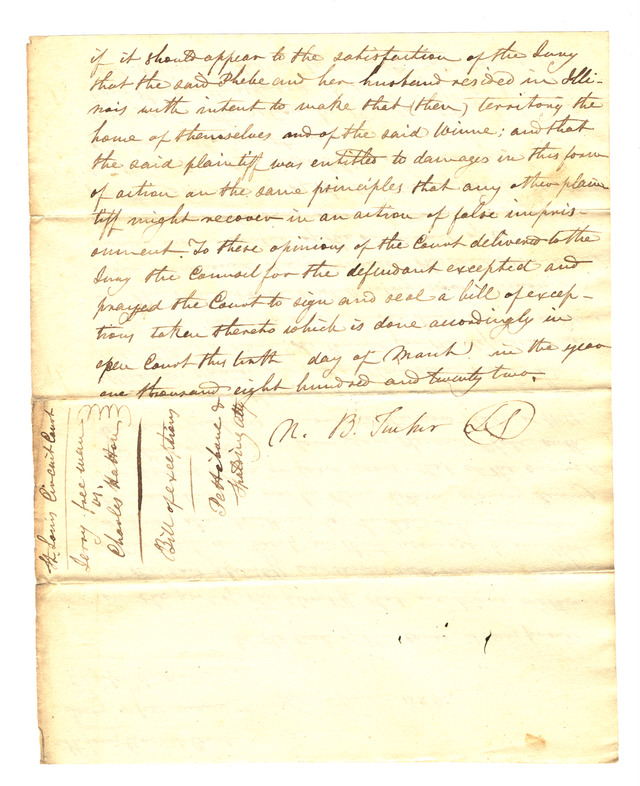 if it should appear to the satisfaction of the Jury
that the said Phebe and her husband resided in Illi-
nois with intent to make that (then) territory the
home of themselves and of the said Winne; and that
the said plaintiff was entitled to damages in this form
of action on the same principles that any other plain
tiff might recover in an action of false impris-
onment. To these opinions of the Court delivered to the
Jury the Council for the defendant excepted and
prayed the Court to sign and seal a bill of excep-
tions taken thereto which is done accordingly in
open Court this tenth day of March in the year
one thousand eight hundred and twenty two.
N. B. Tucker LS
St. Louis Circuit Court
Jerry free man
vs.
Charles Hatton
Bill of exceptions
Pettibone &
Spalding Atty